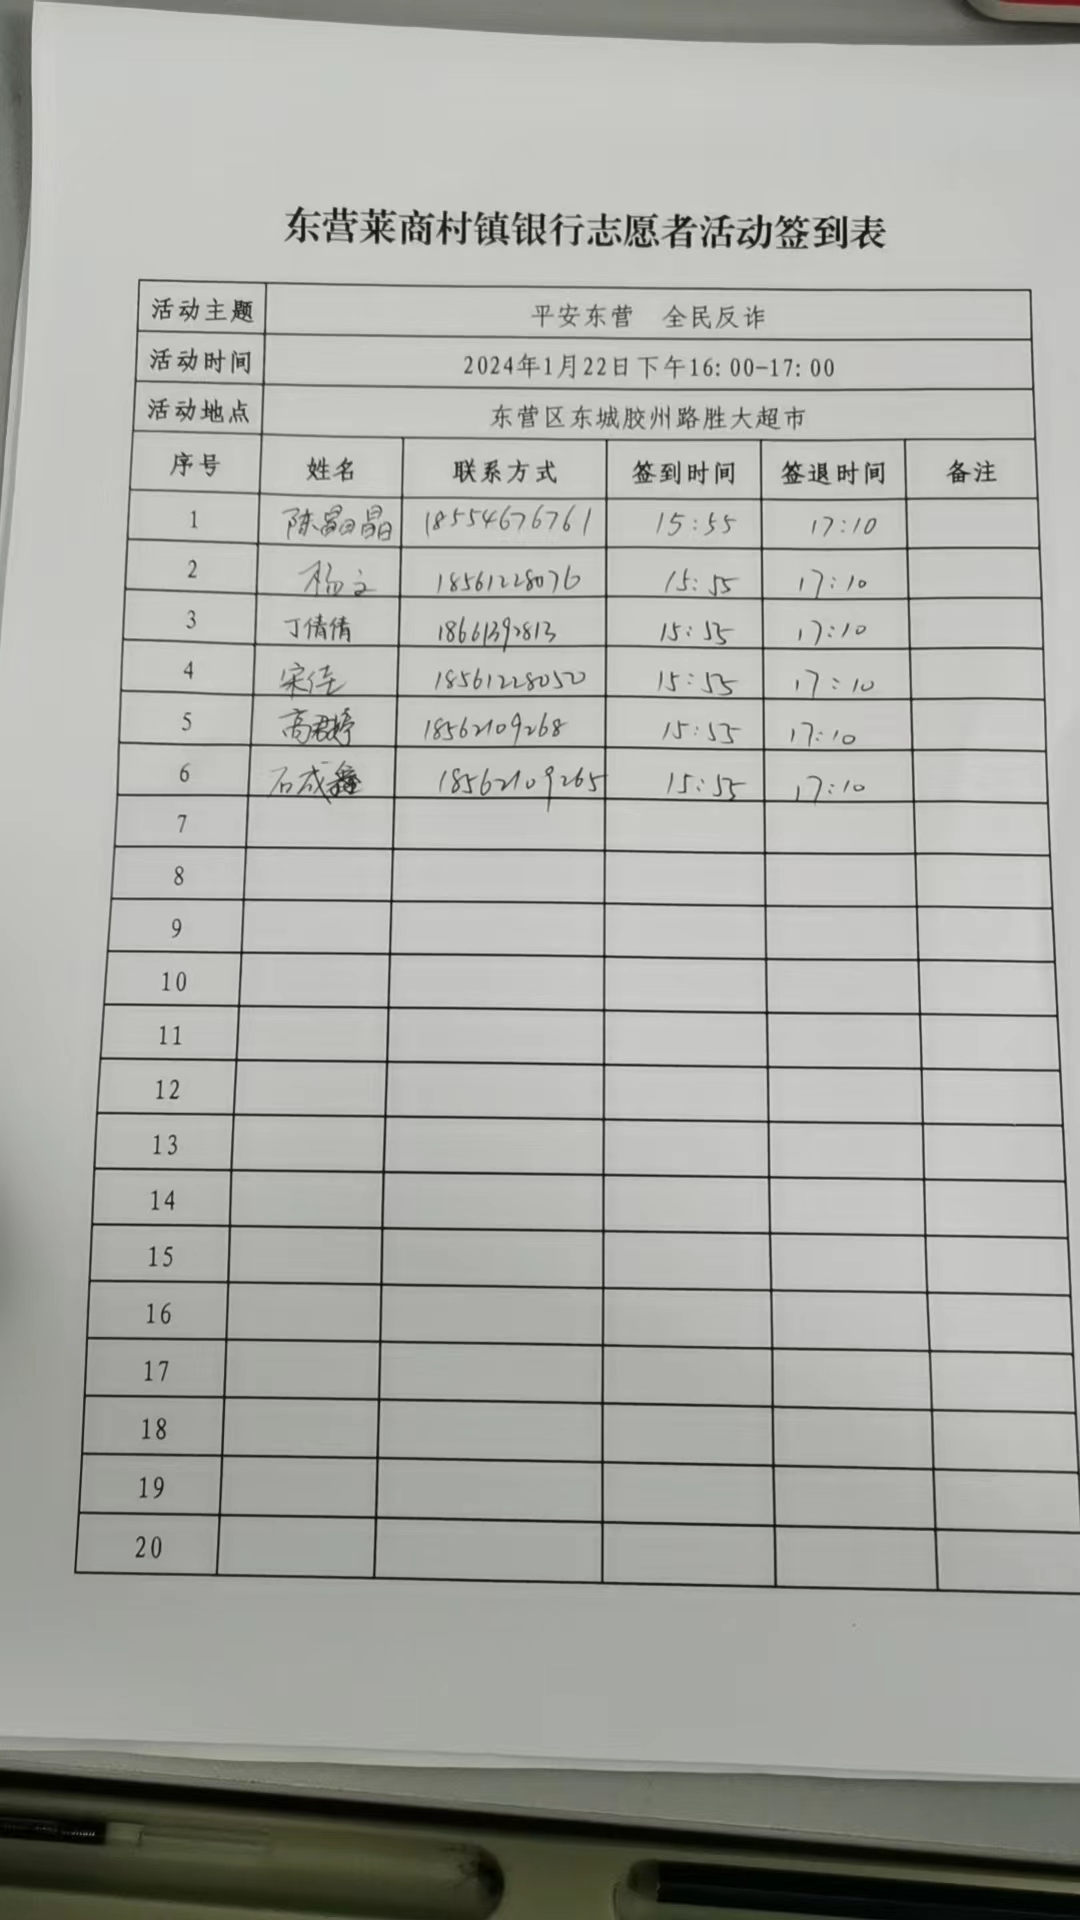 东营莱商村镇银行志愿者活动签到表
活动主题 平安东营 全民反诈
活动时间 2024年1月22日下午16:00-17:00
活动地点 东营区东城胶州路胜大超市
序号 姓名 联系方式 签到时间 签退时间 备注
1 陈晶晶 18554676761 15:55 17:10
2 杨文 18561228076 15:55 17:10
3 丁倩倩 18661392813 15:55 17:10
4 宋佳 18561228050 15:55 17:10
5 高君婷 18562109268 15:55 17:10
6 石成鑫 18562109265 15:55 17:10
7
8
9
10
11
12
13
14
15
16
17
18
19
20